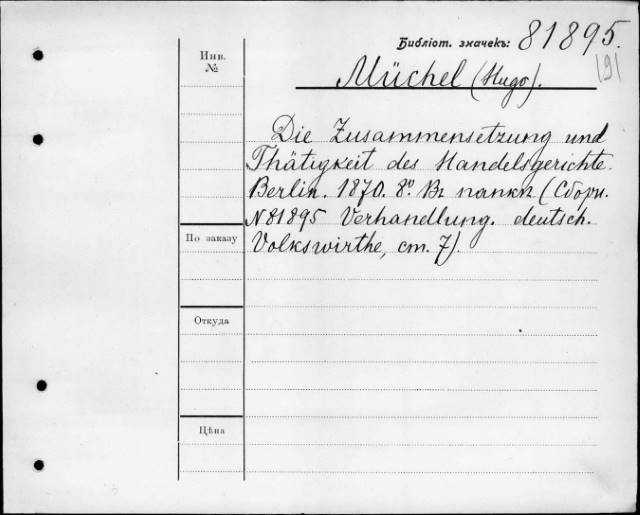 Библіот. значекъ: 81895.
191
Инв.
№
Müchel (Hugo).
Die Zusammensetzung und
Thätigkeit des Handelsgerichte.
Berlin. 1870. 8º. Въ папкѣ (Сборн.
№ 81895 Verhandlung. deutsch.
Volkswirthe, ст. 7).
По заказу
Откуда
Цѣна